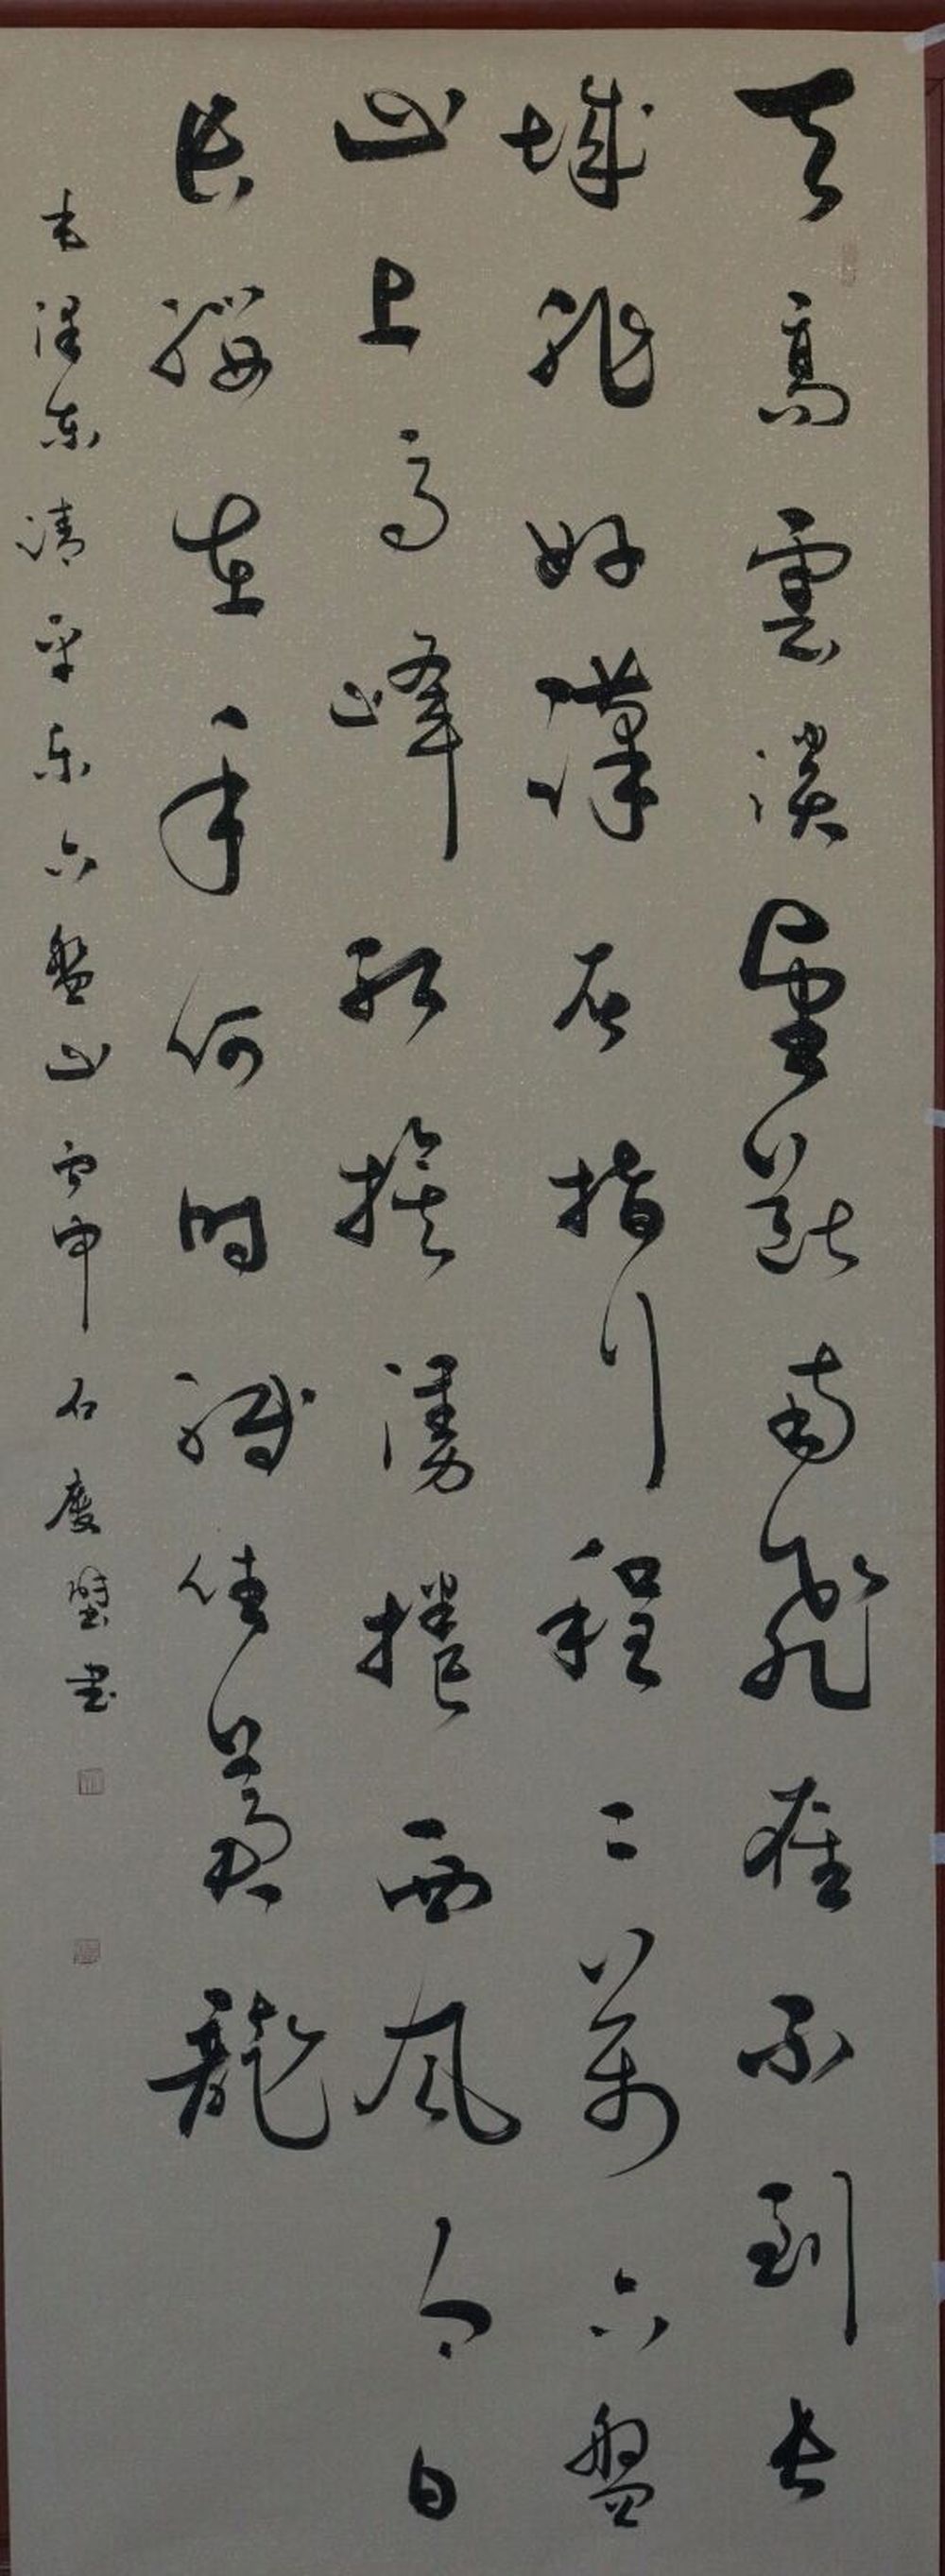 天高雲淡望斷南飛雁不到長
城非好漢屈指行程二萬六盤
山上高峰紅旗漫捲西風今日
長纓在手何時縛住蒼龍
毛澤东清平乐六盤山申石書